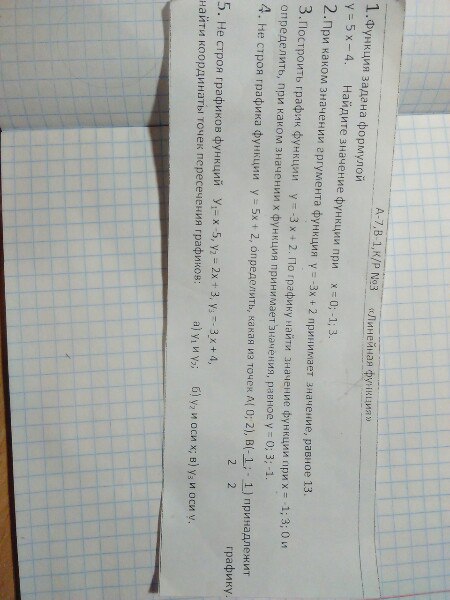 А-7,В-1,К/Р №3 «Линейная функция»
1.Функция задана формулой
у = 5 х – 4. Найдите значение функции при х = 0; -1; 3.
2.При каком значении аргумента функция у = -3х + 2 принимает значение, равное 13.
3.Построить график функции у = -3 х + 2. По графику найти значение функции при х = -1; 3; 0 и
определить, при каком значении х функция принимает значения, равное у = 0; 3; -1
4. Не строя графика функции у = 5х + 2, определить, какая из точек А( 0; 2), В(-1 ; - 1) принадлежит
2 2 графику.
5. Не строя графиков функций У1= х -5, у2 = 2х + 3, у3 = -3 х + 4,
найти координаты точек пересечения графиков: а) у1 и у2; б) у2 и оси х; в) у3 и оси у.